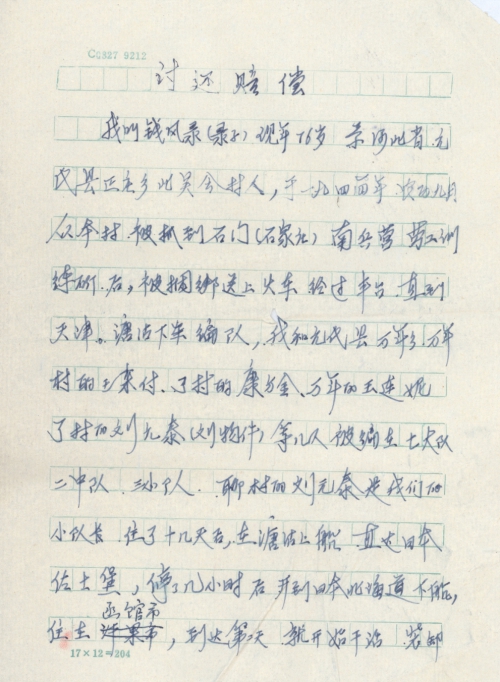 CG827 9212
讨还赔偿
我叫钱风录(录子)现年76岁 系河北省元
氏县正庄乡北吴会村人,于一九四四年 农历九月
从本村被抓到石门(石家庄)南兵营劳工训
练所.后,被捆绑送上火车经过丰台.直到
天津。塘沽下车编队,我和元氏县万年乡万年
村的王来付、了村的康万金、万年的王连妮
了村的刘元泰(刘物件)等几人被编在七大队
二中队.三小队人.聊村的刘元泰是我们的
小队长 住了十几天后,在塘沽上船 直达日本
佐土堡,停了几小时后 开到日本北海道下船,
函馆市
住在,到达第二天 就开始干活.装卸
17×12=204